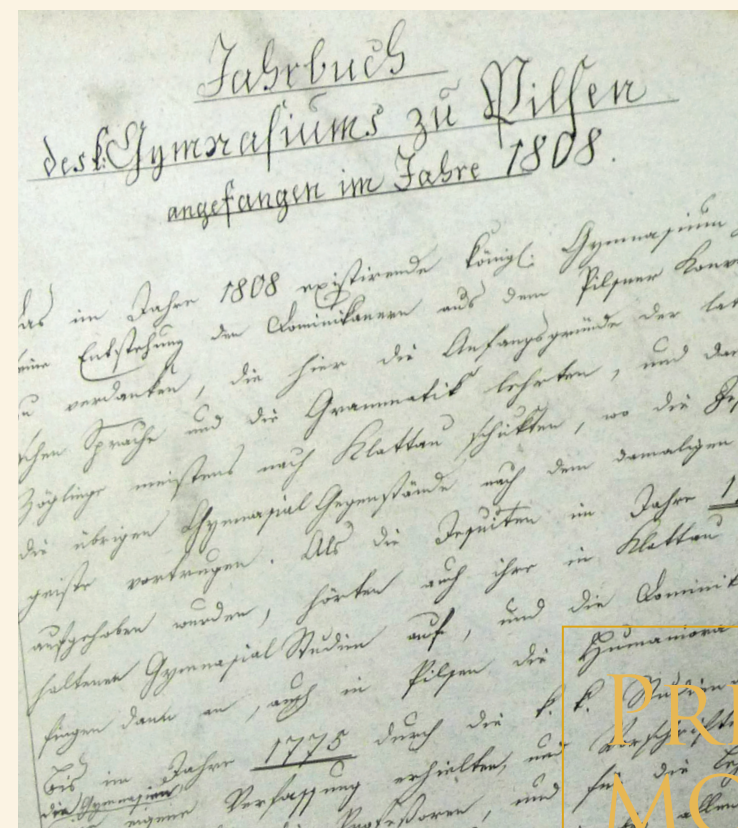 Jahrbuch
des k. Gymnasiums zu Pilsen
angefangen im Jahre 1808.
das im Jahre 1808 existirende königl: Gymnasium
seine Entstehung den Dominikanern aus dem Pilsner
zu verdanken, die hier die Anfangsgründe der
schen Sprache und die Grammatik lehrten, und
Zöglinge meistens nach Klattau schikten, wo die
die übrigen Gymnasial Gegenstände nach dem damaligen
geiste vortrugen. Als die Jesuiten im Jahre
aufgehoben wurden, hörten auch ihre in Klattau
haltenen Gymnasial Studien auf, und die
fingen dann an, auch in Pilsen die Humaniora
bis im Jahre 1775 durch die k. k.
die Gymnasien
eigene Verfassung erhielten, und
Professoren, und für die
PR
MO